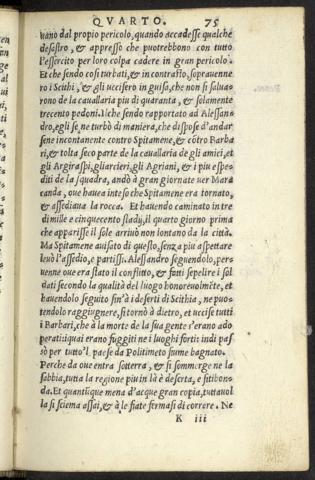 QVARTO. 75
uano dal proprio pericolo, quando accadesse qualche
desastro, & appresso che puotrebbono con tutto
l'essercito per loro colpa cadere in gran pericolo.
Et che sendo cosi turbati, & in contrasto, soprauenne
ro i Scithi, & gli uccisero in guisa, che non si salua-
rono de la cauallaria piu di quaranta, & solamente
trecento pedoni. Ilche sendo rapportato ad Alessan-
dro, egli se ne turbò di maniera, che dispose d'andar
sene incontanente contro Spitamene, & cõtro Barba
ri, & tolta seco parte de la cauallaria de gli amici, et
gli Argiraspi, gli arcieri, gli Agriani, & i piu espe-
diti de la squadra, andò à gran giornate uer Mara
canda, oue hauea inteso che Spitamene era tornato,
& assediaua la rocca. Et hauendo caminato in tre
di mille e cinquecento stadij, il quarto giorno prima
che apparisse il sole arriuò non lontano da la città.
Ma Spitamene auisato di questo, senza piu aspettare
leuò l'assedio, e partissi. Alessandro seguendolo, per-
uenne oue era stato il conflitto, & fatti sepelire i sol
dati secondo la qualità del luogo honoreuolmẽte, et
hauendolo seguito sin'à i deserti di Scithia, ne puo-
tendolo raggiugnere, si tornò à dietro, et uccise tutti
i Barbari, che à la morte de la sua gente s'erano ado
perati: iquai erano fuggiti ne i luoghi forti: indi pas
sò per tutto'l paese da Politimeto fiume bagnato.
Perche da oue entra sotterra, & si sommerge ne la
sabbia, tutta la regione piu in là è deserta, e sitibon-
da. Et quantũque mena d'acque gran copia, tuttauol
la si sciema assai, & à le fiate fermasi di correre. Ne
K iii